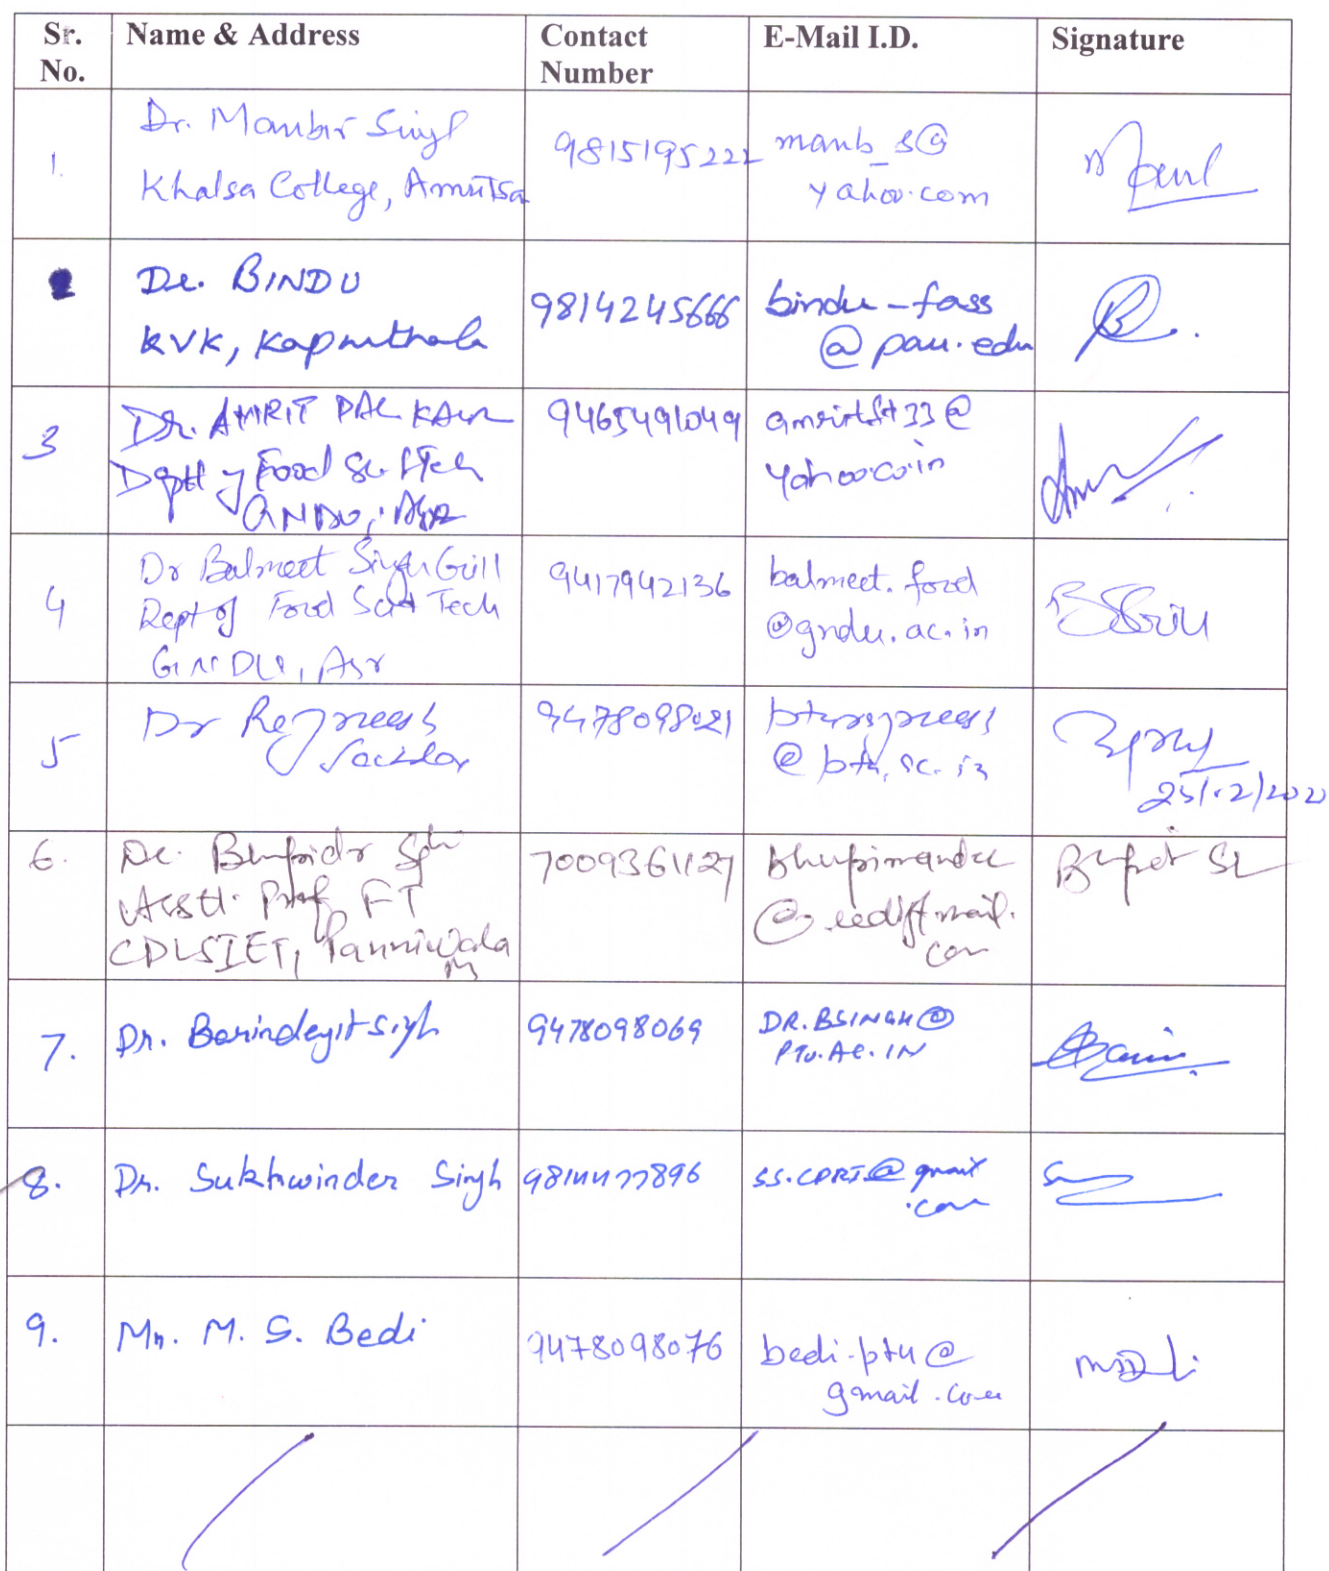 Sr. No.
Name & Address
Contact Number
E-Mail I.D.
Signature
1.
Dr. Manbir Singh
Khalsa College, Amritsa
9815195222
manb_s@
yahoo.com
2
Dr. BINDU
KVK, Kapurthala
9814245666
bindu-fass
@pau.edu
3
Dr. AMRIT PAL KAUR
Deptt of Food Sc. & Tech
GNDU, Asr
9465491049
@
yahoo.co.in
4
Dr Balmeet Singh Gill
Dept of Food Sci & Tech
GNDU, Asr
9417942136
balmeet.food
@gndu.ac.in
BSGill
5
Dr
9478098021
6.
Dr.
Asstt. Prof. FT
CDLSIET, Panniwala
7009361127
@rediffmail.
com
7.
Dr. Barinderjit Singh
9478098069
DR.BSINGH@
PTU.AC.IN
8.
Dr. Sukhwinder Singh
SS.CORI@gmail
.com
9.
Mr. M. S. Bedi
9478098076
bedi.ptu@
gmail.com